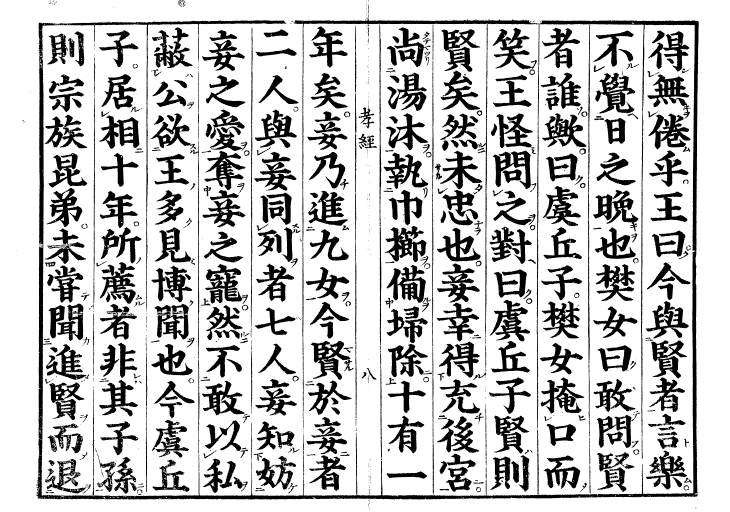 得無倦乎王曰今與賢者言樂
不覺日之晚也樊女曰敢問賢
者誰歟曰虞丘子樊女掩口而
笑王怪問之對曰虞丘子賢則
賢矣然未忠也妾幸得充後宮
尚湯沐執巾櫛備埽除十有一
孝經
八
年矣妾乃進九女今賢於妾者
二人與妾同列者七人妾知妨
妾之愛奪妾之寵然不敢以私
蔽公欲王多見博聞也今虞丘
子居相十年所薦者非其子孫
則宗族昆弟未嘗聞進賢而退